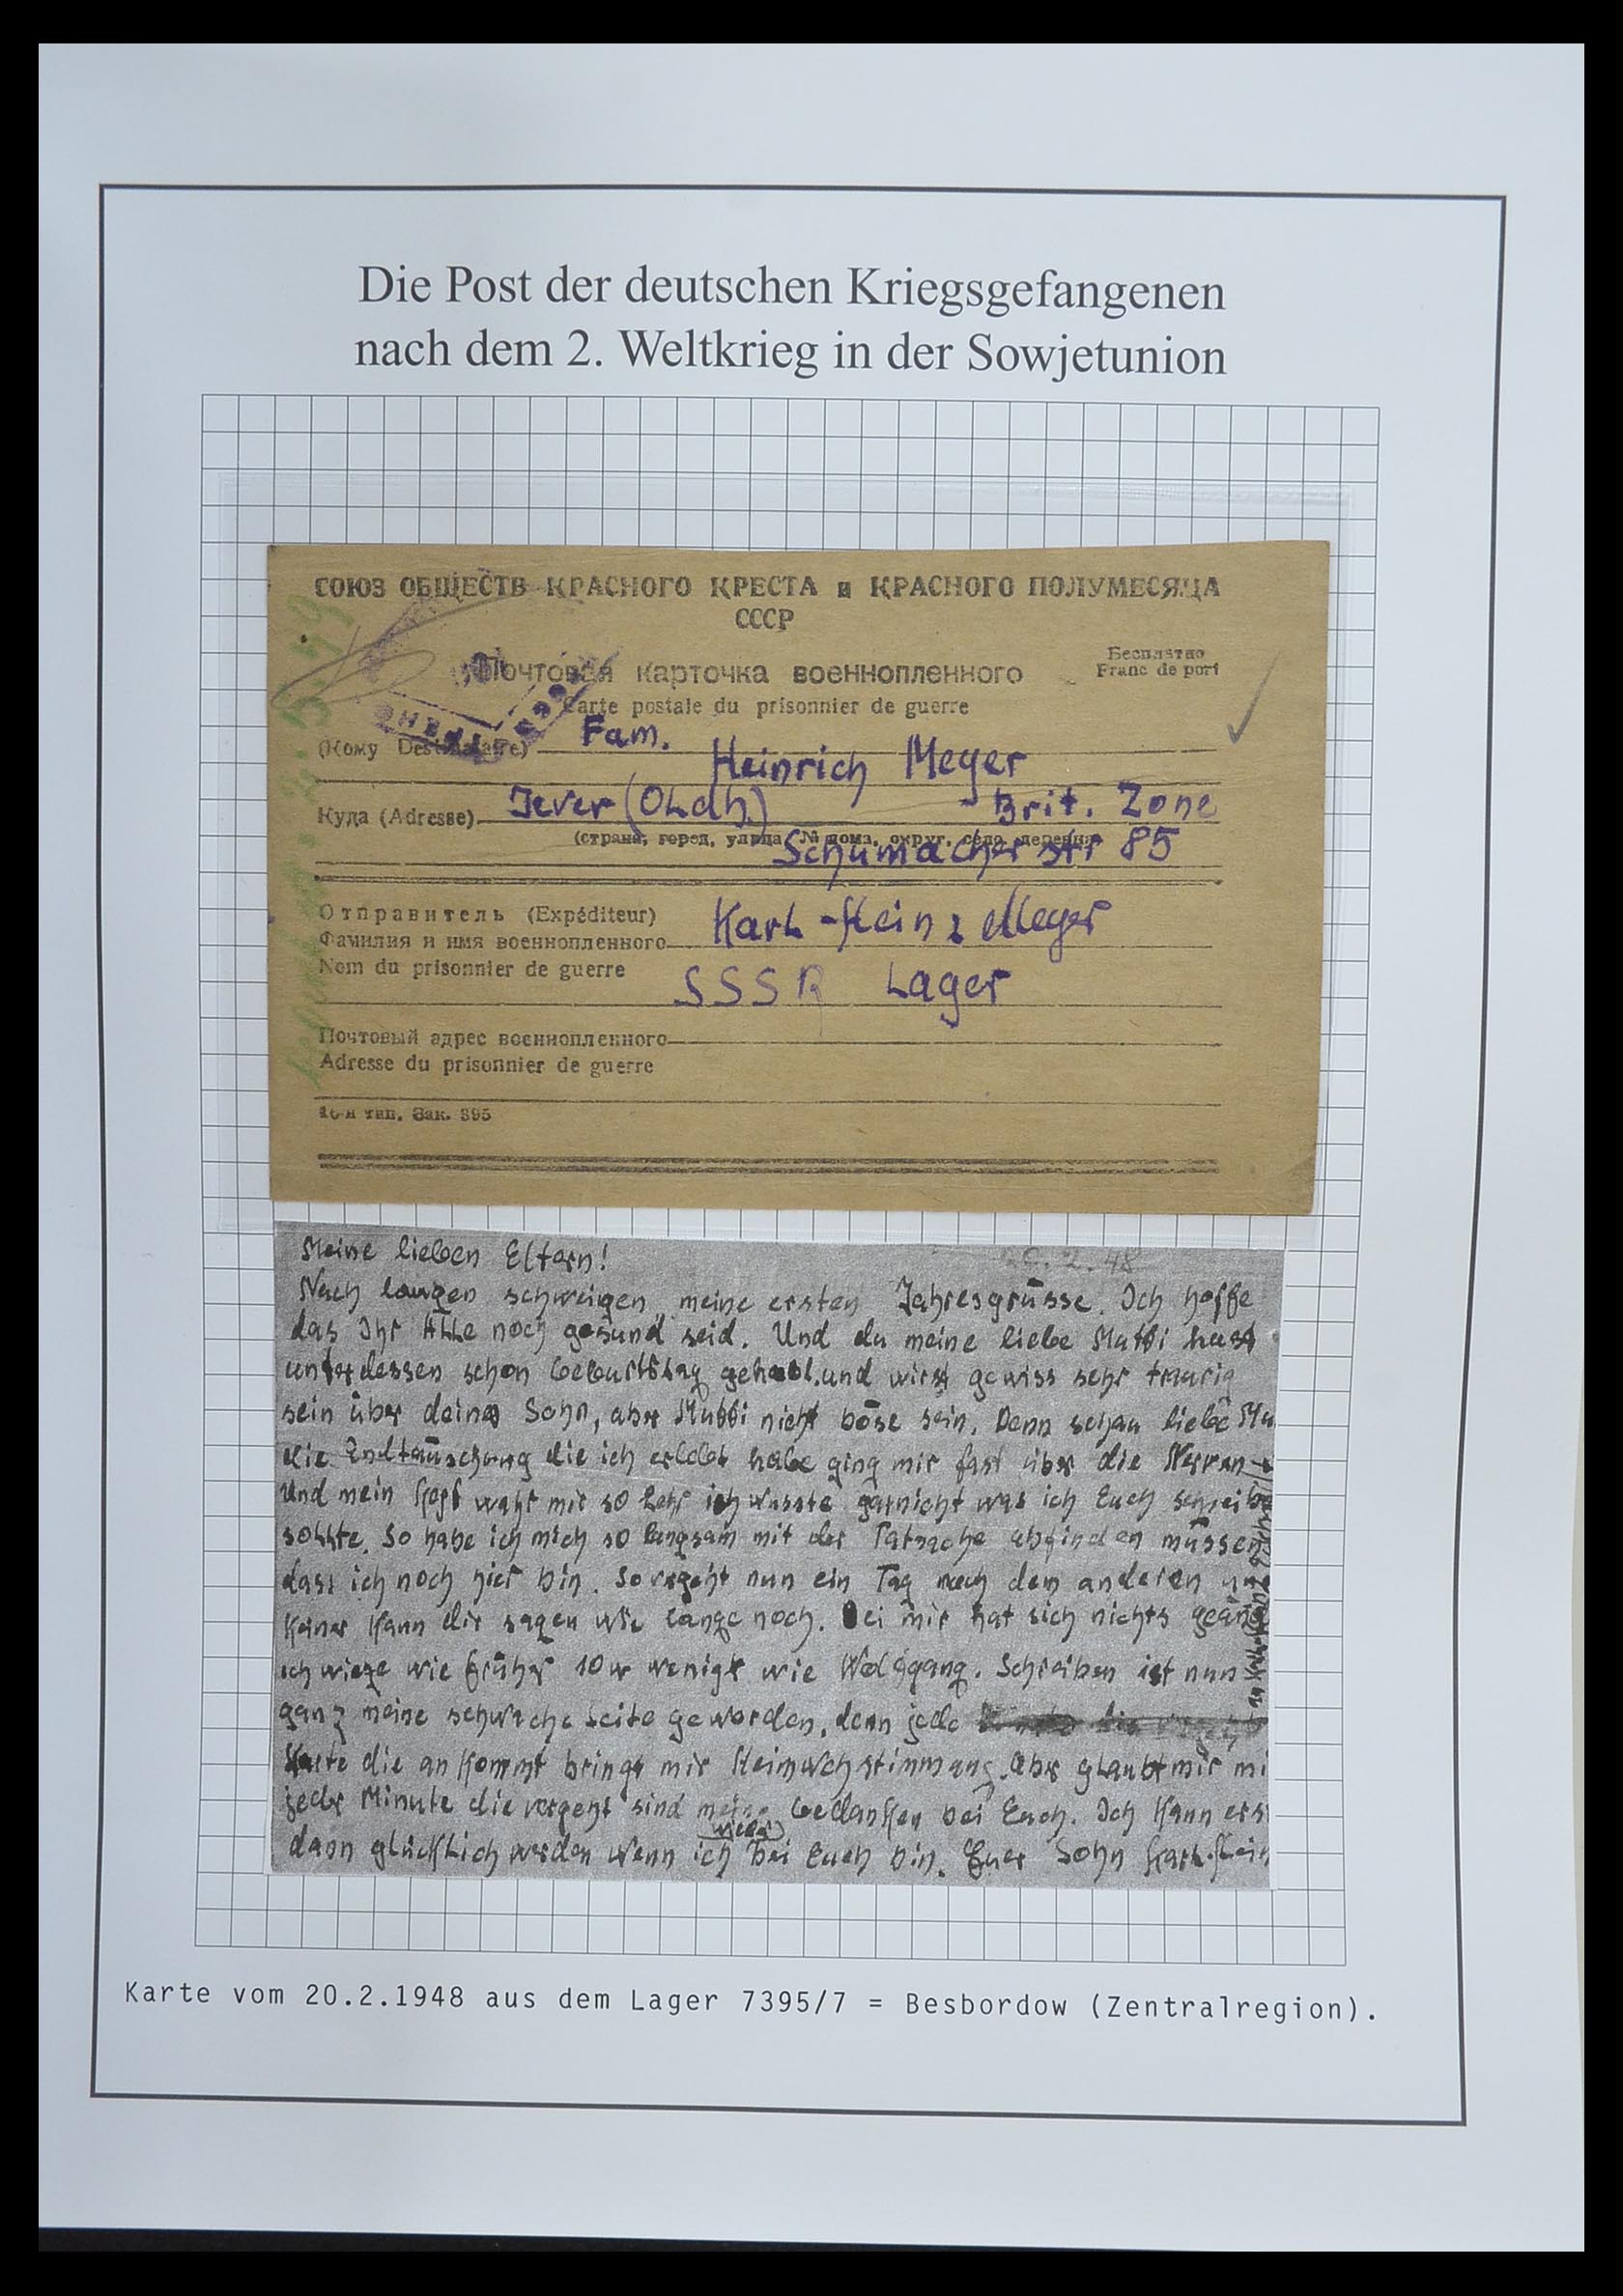 Die Post der deutschen Kriegsgefangenen
nach dem 2. Weltkrieg in der Sowjetunion
СОЮЗ ОБЩЕСТВ КРАСНОГО КРЕСТА и КРАСНОГО ПОЛУМЕСЯЦА
СССР
Почтовая карточка военнопленного
Бесплатно
Franc de port
Carte postale du prisonnier de guerre
(Кому Destinataire) Fam.
Heinrich Meyer
Куда (Adresse) Jever (Oldb.) - Brit. Zone
(страна, город, улица, № дома, округ, село, деревня)
Schumacherstr 85
Отправитель (Expéditeur)
Фамилия и имя военнопленного Karl-Heinz Meyer
Nom du prisonnier de guerre
SSSR Lager
Почтовый адрес военнопленного
Adresse du prisonnier de guerre
16-я тип. Зак. 395
Meine lieben Eltern! 2.48
Nach langen schweigen meine ersten Jahresgrüsse. Ich hoffe
das Ihr Alle noch gesund seid. Und du meine liebe Mutti hast
unterdessen schon Geburtstag gehabt. und wirst gewiss sehr traurig
sein über deinen Sohn, aber Mutti nicht böse sein. Denn schau liebe Mu
die Endtäuschung die ich erlebt habe ging mir fast über die Nerven
Und mein Kopf wahr mir so ich wusste garnicht was ich Euch schreibe
sollte. So habe ich mich so langsam mit der Tatsache abfinden müssen
dass ich noch hier bin. So vergeht nun ein Tag nach dem anderen
Keiner Kann dir sagen wie lange noch. Bei mir hat sich nichts geänd
ich wiege wie früher 10 wenigr wie Wolfgang. Schreiben ist nun
ganz meine schwache Seite geworden, denn jede
Karte die an Kommt bringt mir Heimwehstimmung. Aber glaubt mir mi
jeder Minute die vergeht sind meine Gedanken bei Euch. Ich Kann ers
wieder
dann glücklich werden wenn ich bei Euch bin. Euer Sohn Karl-Hein
Karte vom 20.2.1948 aus dem Lager 7395/7 = Besbordow (Zentralregion).